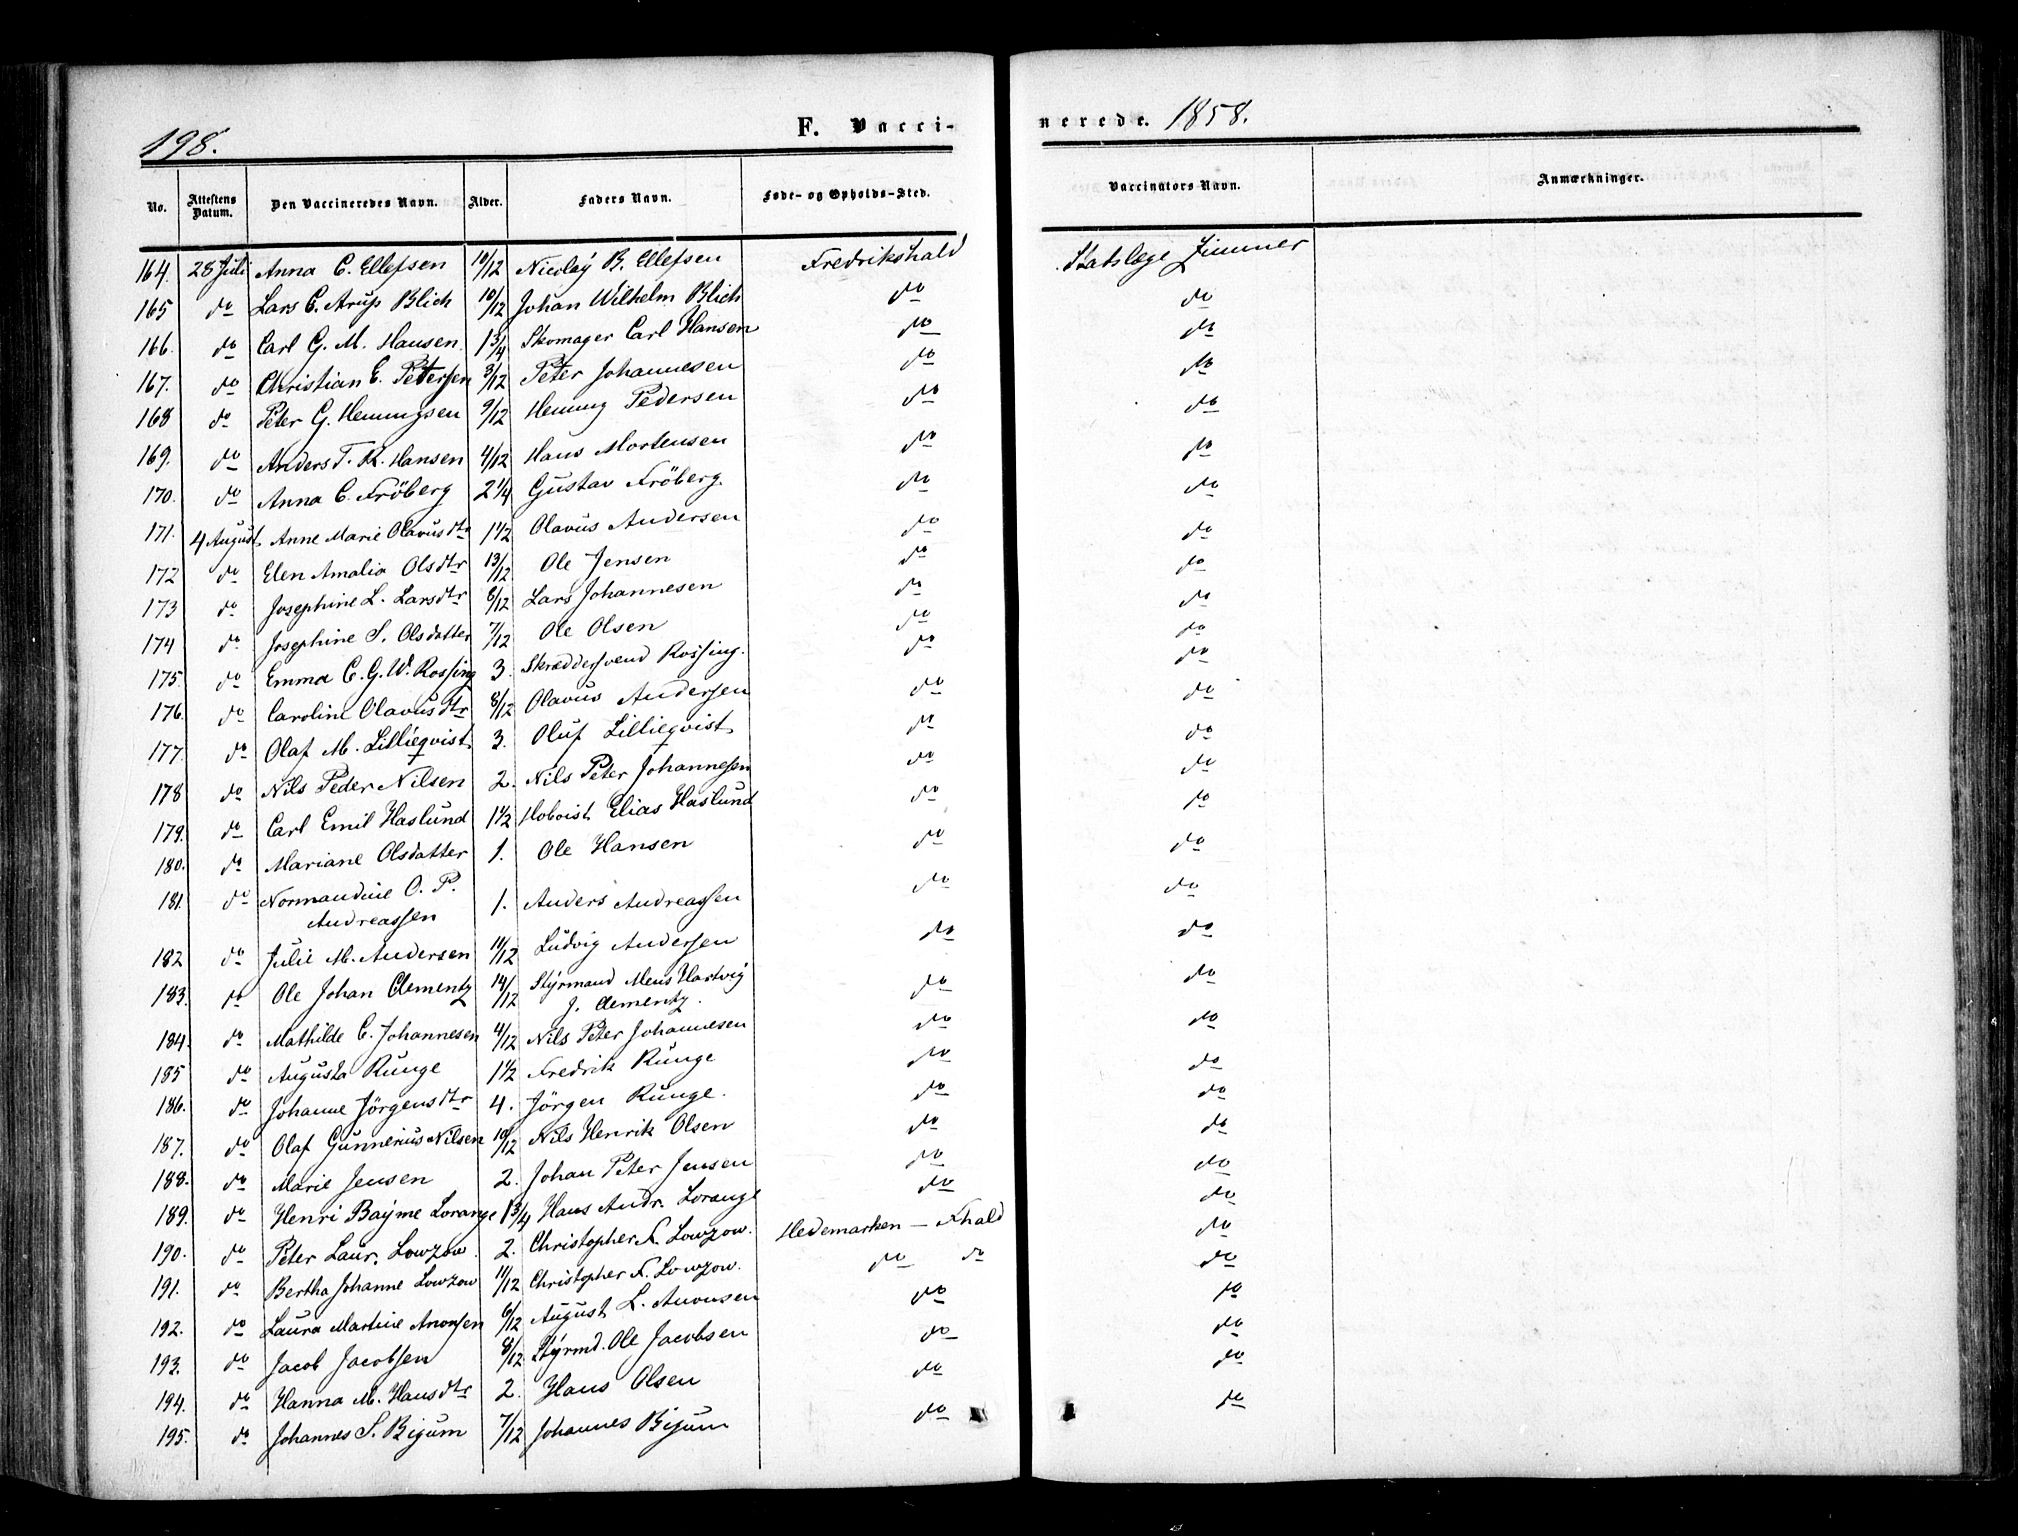 198.
F. Vaccinerede. 1858.
No. Attestens Datum. Den Vaccineredes Navn. Alder. Faders Navn. Føde- og Opholds-Sted. Vaccinators Navn. Anmærkninger.
164. 28 Juli Anna C. Ellefsen 10/12 Nicolaÿ B. Ellefsen Fredrikshald Statslæge Zimmer
165 do Lars C. Arup Blich 10/12 Johan Wilhelm Blich do do
166. do Carl G. M. Hansen. 1 3/4 Skomager Carl Hansen do do
167. do Christian E. Petersen 3/12 Peter Johannesen do do
168 do Peter G. Hemingsen 9/12 Heming Pedersen do do
169. do Anders T. R. Hansen 4/12 Hans Mortensen do do
170. do Anna C. Fröberg 2 1/4 Gustav Fröberg. do do
171. 4 August Anne Marie Olavusdtr 1 1/2 Olavus Andersen do do
172 do Elen Amalia Olsdtr 13/12 Ole Jensen do do
173 do Josephine L. Larsdtr 8/12 Lars Johannesen do do
174 do Josephine S. Olsdatter 7/12 Ole Olsen do do
175. do Emma C. G. W. Rossing 3. Skræddersvend Rossing. do do
176. do Caroline Olavusdtr 8/12 Olavus Andersen do do
177. do Olaf M. Lillieqvist 3. Oluf Lillieqvist do do
178 do Nils Peder Nilsen 2. Nils Peter Johannesen do do
179. do Carl Emil Haslund 1 1/2 Hoboist Elias Haslund do do
180. do Mariane Olsdatter 1. Ole Hansen do do
181. do Normandine O. P. Andreassen 1. Anders Andreassen do do
182 do Julie M. Andersen 11/12 Ludvig Andersen do do
183. do Ole Johan Clementz 14/12 Styrmand Mens Hartvig J. Clementz. do do
184. do Mathilde C. Johannesen 4/12 Nils Peter Johannesen do do
185 do Augusta Runge 1 1/2 Fredrik Runge do do
186. do Johanne Jörgensdtr 4. Jörgen Runge. do do
187. do Olaf Gunnerius Nilsen 10/12 Nils Henrik Olsen do do
188. do Marie Jensen 2. Johan Peter Jensen do do
189. do Henri Bayme Lorange 1 3/4 Hans Andr. Lorange do do
190. do Peter Laur. Lowzow. 2. Christopher F. Lowzow. Hedemarken — Fhald do
191. do Bertha Johanne Lowzow 11/12 Christopher F. Lowzow. do do do
192. do Laura Martine Anonsen 6/12 August L. Anonsen do do
193. do Jacob Jacobsen 8/12 Styrmd. Ole Jacobsen do do
194. do Hanna M. Hansdtr 2. Hans Olsen do do
195. do Johannes S. Bigum 7/12 Johannes Bigum do do